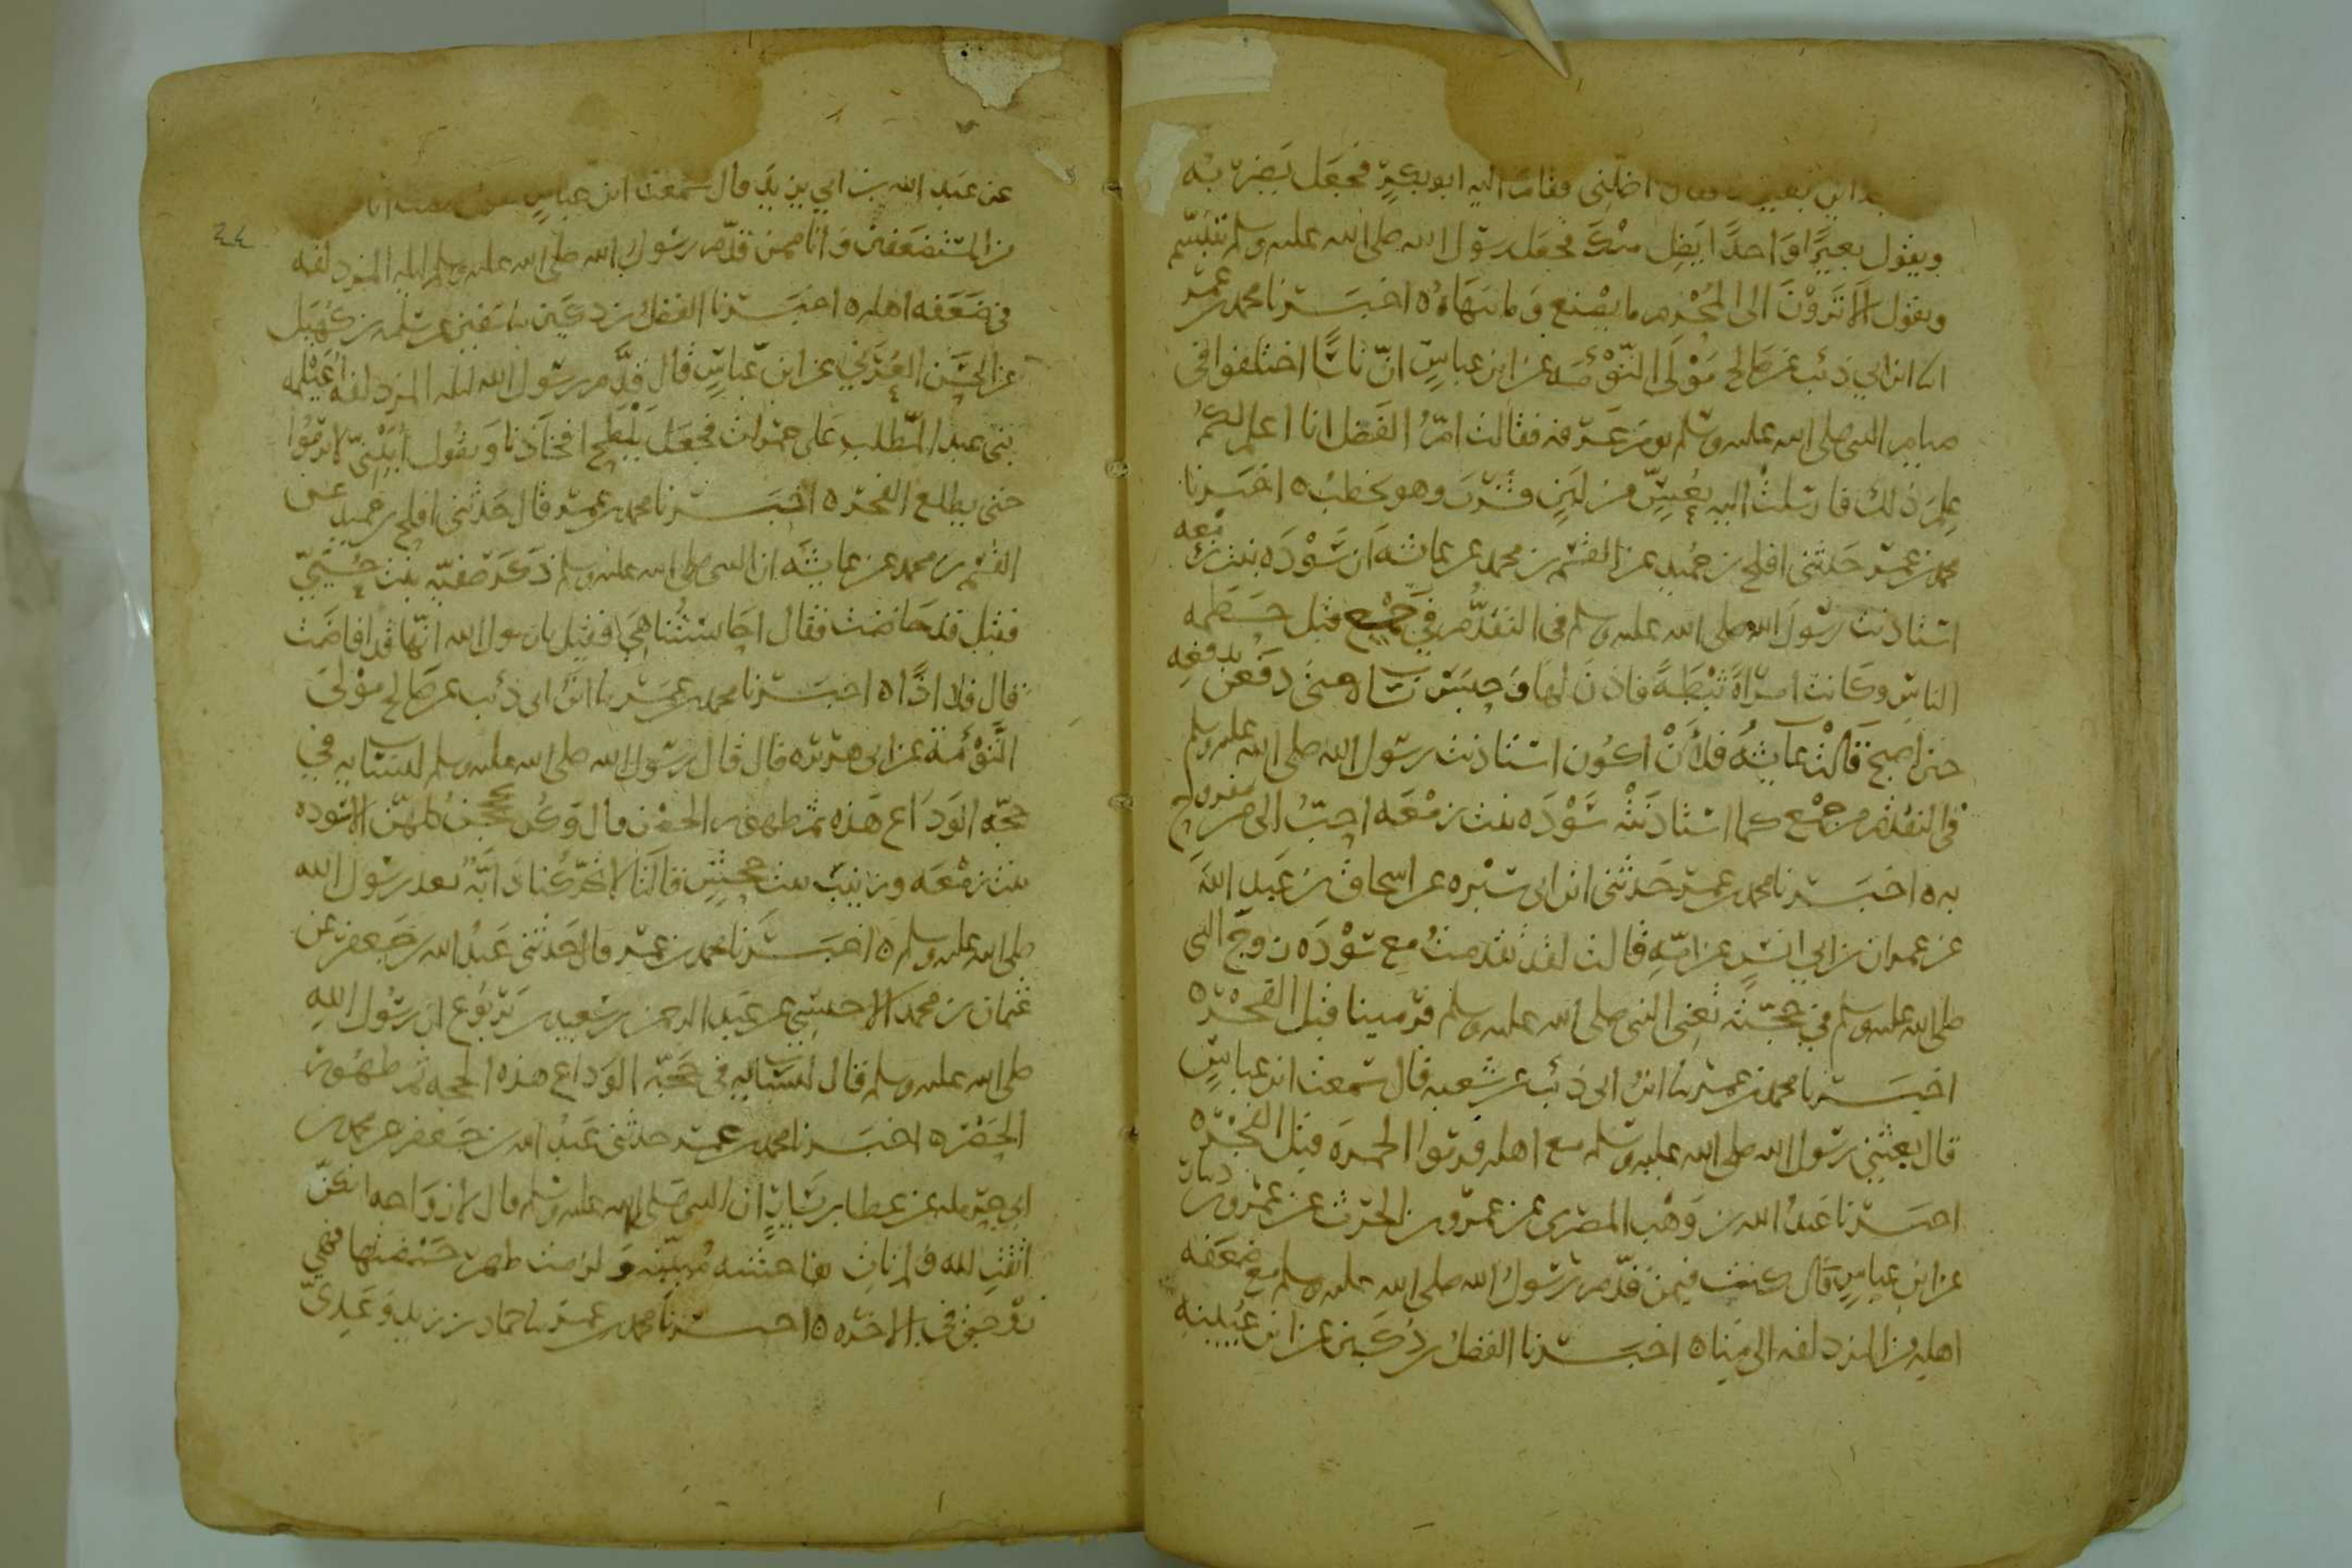 فقال اضلني فقام اليه ابو بكرٍ فجعَل يَضربُه
ويقول بعيرًا واحدًا ايَضِل منكَ فجعَل رسول الله صلى الله عليه وسلم يتبسّم
ويقول ألا تَرَوْنَ الى المُحْرم ما يصْنع وما ينهَاهُ ٥ اخبَــرنا محمد بن عمر
انا ابن ابي ذئب عن صَالح مَوْلى التّوْءمَه عن ابن عباسٍ انّ ناسًا اختلفوا في
صيام النبي صلى الله عليه وسلم يوم عَرفه فقالت امّ الفَضل انا اعلم لكم
عِلمَ ذلك فارسَلتْ اليه بعُسٍّ من لبَنٍ فشربَ وهو يخطبُ ٥ اخبَرنا
محمد بن عمر حَدثني افلح بن حُميد عن القسم بن محمد عن عائشه ان سَوْدَه بنت زمْعه
استاذنت رسُولَ الله صلى الله عليه وسلم في التقدُّم في جَمْع قبل حَطمه
الناس وكانت امراةً ثبْطةً فاذنَ لها وَحبسَ نساه حتى دفعن بدفعه
حين اصبح قالت عائشه فلأنْ اكون استاذنت رسول الله صلى الله عليه وسلم
في التقدم من جمْع كما استاذنتْه سَوْدَه بنت زمْعَه احبّ الى من مفروح
به ٥ اخبَــرنا محمد بن عمر حَدثني ابن ابي سَبْره عن اسحاق بن عَبد الله
عن عمران بن ابي انسٍ عن امّهِ قالت لقد تقدمتُ مع سَوْدَه زوج النبي
صلى الله عليه وسلم في حجّته يَعني النبي صلى الله عليه وسلم فرَمينا قبل الفَجْر ٥
اخبَــرنا محمد بن عمر نا ابنُ ابي ذئب عن شعبه قال سَمعت ابن عباسٍ
قال بعثني رسول الله صلى الله عليه وسلم مع اهله فرمَوا الجمرَه قبل الفجْر ٥
اخبَــرنا عَبدُ الله بن وَهْب المصْرى عن عمرو بن الحرث عن عَمرو بن دينار
عن ابن عباسٍ قال كنت فيمن قدّم رسُولُ الله صلى الله عليه وسلم مع ضعَفه
اهله من المزدلفه الى مِنا ٥ اخبَــرنا الفَضلُ بن دُكَين عن ابن عُيَينه
عن عبَيد الله بن ابي يزيدَ قال سَمعت ابن عباسٍ
من المستضعَفين وَانا ممن قدّم رسُول الله صلى الله عليه وسلم ليله المزدلفه
في ضَعَفه اهله ٥ اخبَــرنا الفضلُ بن دكَين نا سفين عن سلمه بن كُهَيل
عن الحَسَن العُرَني عن ابن عَباسٍ قال قدَّم رسول الله ليله المزدلفه اغَيْلمه
بني عبد المطلب على حمُرات فجعَل يلْطح افخاذنا ويقول أُبَيْنيّ لا ترمُوا
حتى يطلع الفجر ٥ اخبَــرنا محمد بن عمر قال حَدثني افلح بن حميد عن
القسم بن محمد عن عائشَه ان النبي صلى الله عليه وسلم ذكَر صَفيّه بنت حُيَيّ
فقيل قد حَاضت فقال احَابسَتُنا هي فقيل يا رسول الله انّها قد افاضَت
قال فلا اذًا ٥ اخبَــرنا محمد بن عمر نا ابنُ ابي ذئب عن صَالح موْلى
التّوْءَمة عن ابي هريره قال قال رسول الله صلى الله عليه وسلم لنسَائه في
حجّه الوَدَاع هَذه ثم ظهور الحصْر قال وَكن يحججن كلهنّ الا سَوده
بنت زمْعَه وزينبَ بنت جحشٍ قالَتا لا تحرّكنا دَابَّهٌ بعد رسُول الله
صلى الله عليه وسلم ٥ اخبَــرنا محمد بن عمر قال حَدثني عَبدُ الله بن جَعفر عن
عثمان بن محمد الاخنسيّ عن عَبد الرحمن بن سَعيد بن يَربُوع ان رسُول الله
صلى الله عليه وسلم قال لنسَائه في حَجّه الوَداع هذه الحجه ثم ظهُور
الحُصْر ٥ اخبَــرنا محمد بن عمر حدثني عَبدُ الله بن جَعفر عن محمد بن
ابي حَرمله عن عطا بن يسَارٍ ان النبي صَلى الله عليه وسلم قال لازواجه ايّكنّ
اتقتِ الله ولم تاتِ بفاحشه مُبيّنه وَلزمت ظهر حَصيرها فهي
زوجتي في الاخره ٥ اخبَــرنا محمد بن عمر نا حماد بن زيد وَعَديّ
٤٤